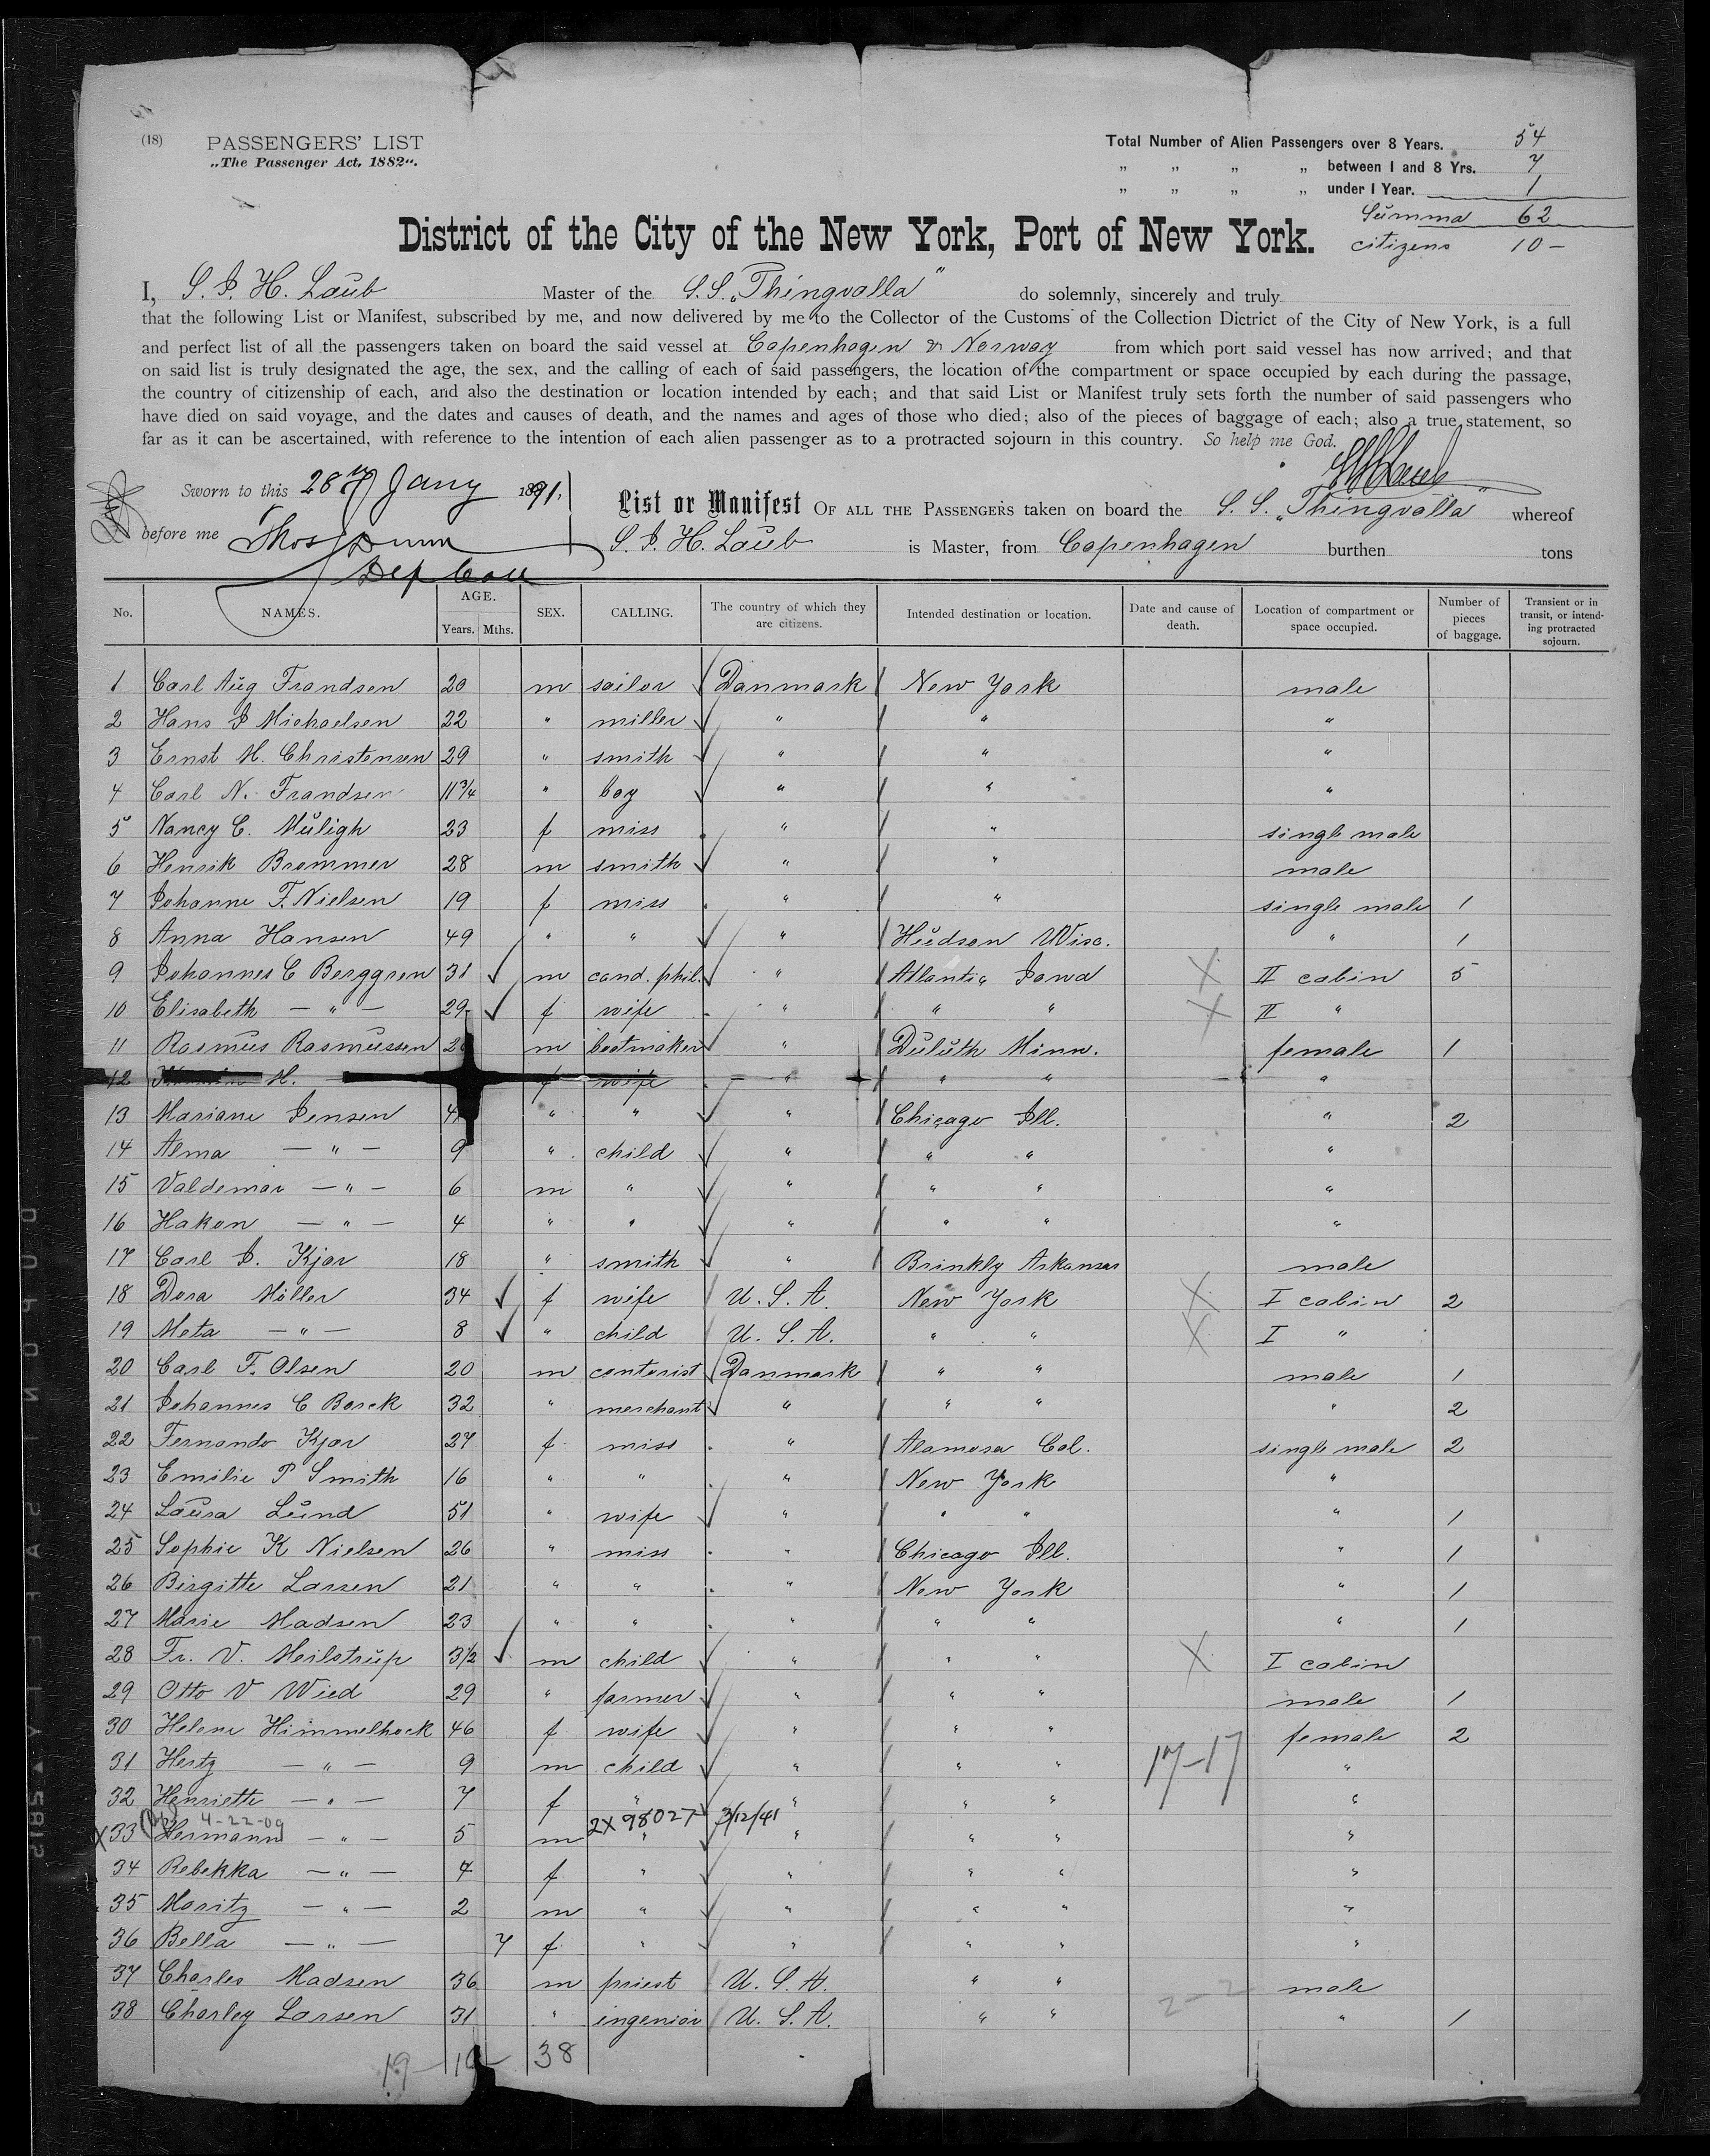 (18)
PASSENGERS' LIST
„The Passenger Act, 1882".
Total Number of Alien Passengers over 8 Years. 54
„ „ „ „ between 1 and 8 Yrs. 7
„ „ „ „ under 1 Year. 1
Summa 62
citizens 10 –
District of the City of the New York, Port of New York.
I, S. J. H. Laub Master of the S.S. „Thingvalla" do solemnly, sincerely and truly
that the following List or Manifest, subscribed by me, and now delivered by me to the Collector of the Customs of the Collection Dictrict of the City of New York, is a full
and perfect list of all the passengers taken on board the said vessel at Copenhagen & Norway from which port said vessel has now arrived; and that
on said list is truly designated the age, the sex, and the calling of each of said passengers, the location of the compartment or space occupied by each during the passage,
the country of citizenship of each, and also the destination or location intended by each; and that said List or Manifest truly sets forth the number of said passengers who
have died on said voyage, and the dates and causes of death, and the names and ages of those who died; also of the pieces of baggage of each; also a true statement, so
far as it can be ascertained, with reference to the intention of each alien passenger as to a protracted sojourn in this country. So help me God.
Sworn to this 28th Jany 1891,
before me Thos J Dunn
Dep Coll
List or Manifest OF ALL THE PASSENGERS taken on board the S. S. „Thingvalla" whereof
S. J. H. Laub is Master, from Copenhagen burthen tons
No. NAMES. AGE. Years. Mths. SEX. CALLING. The country of which they are citizens. Intended destination or location. Date and cause of death. Location of compartment or space occupied. Number of pieces of baggage. Transient or in transit, or intending protracted sojourn.
1 Carl Aug Frandsen 20 m sailor Danmark New York male
2 Hans J Michaelsen 22 " miller " " "
3 Ernst M. Christensen 29 " smith " " "
4 Carl N. Frandsen 11 3/4 " boy " " "
5 Nancy C. Muligh 23 f miss " " single male
6 Henrik Brommer 28 m smith " " male
7 Johanne F. Nielsen 19 f miss " " single male 1
8 Anna Hansen 49 " " " Hudson Wisc. " 1
9 Johannes C Berggren 31 m cand. phil. " Atlantic Jowa X II cabin 5
10 Elisabeth — " — 29 f wife " " " X II "
11 Rasmus Rasmussen m bootmaker " Duluth Minn. female 1
12 M. f wife " " " "
13 Mariane Jensen " " " Chicago Ill. " 2
14 Alma — " — 9 " child " " " "
15 Valdemar — " — 6 m " " " " "
16 Hakon — " — 4 " " " " " "
17 Carl J. Kjar 18 " smith " Brinkly Arkansas male
18 Dora Möller 34 f wife U. S. A. New York X I cabin 2
19 Meta — " — 8 " child U. S. A. " " X I "
20 Carl F. Olsen 20 m contorist Danmark " " male 1
21 Johannes C Borck 32 " merchant " " " " 2
22 Fernando Kjar 27 f miss " Alamosa Col. single male 2
23 Emilie P Smith 16 " " " New York "
24 Laura Lund 51 " wife " " " " 1
25 Sophie K Nielsen 26 " miss " Chicago Ill. " 1
26 Birgitte Larsen 21 " " " New York " 1
27 Marie Madsen 23 " " " " " " 1
28 Fr. V. Meilstrup 3 1/2 m child " " " X I cabin
29 Otto V Wied 29 " farmer " " " male 1
30 Helene Himmelhock 46 f wife " " " female 2
31 Hertz — " — 9 m child " " " 17-17 "
32 Henriette — " — 7 f " " " " "
4-22-09 2X98027 3/12/41
X 33 Hermann — " — 5 m " " " " "
34 Rebekka — " — 4 f " " " " "
35 Moritz — " — 2 m " " " " "
36 Bella — " — 7 f " " " " "
37 Charles Madsen 36 m priest U. S. A. " " male
38 Charley Larsen 31 " ingeniör U. S. A. " " 2-2 " 1
19 – 19 – 38